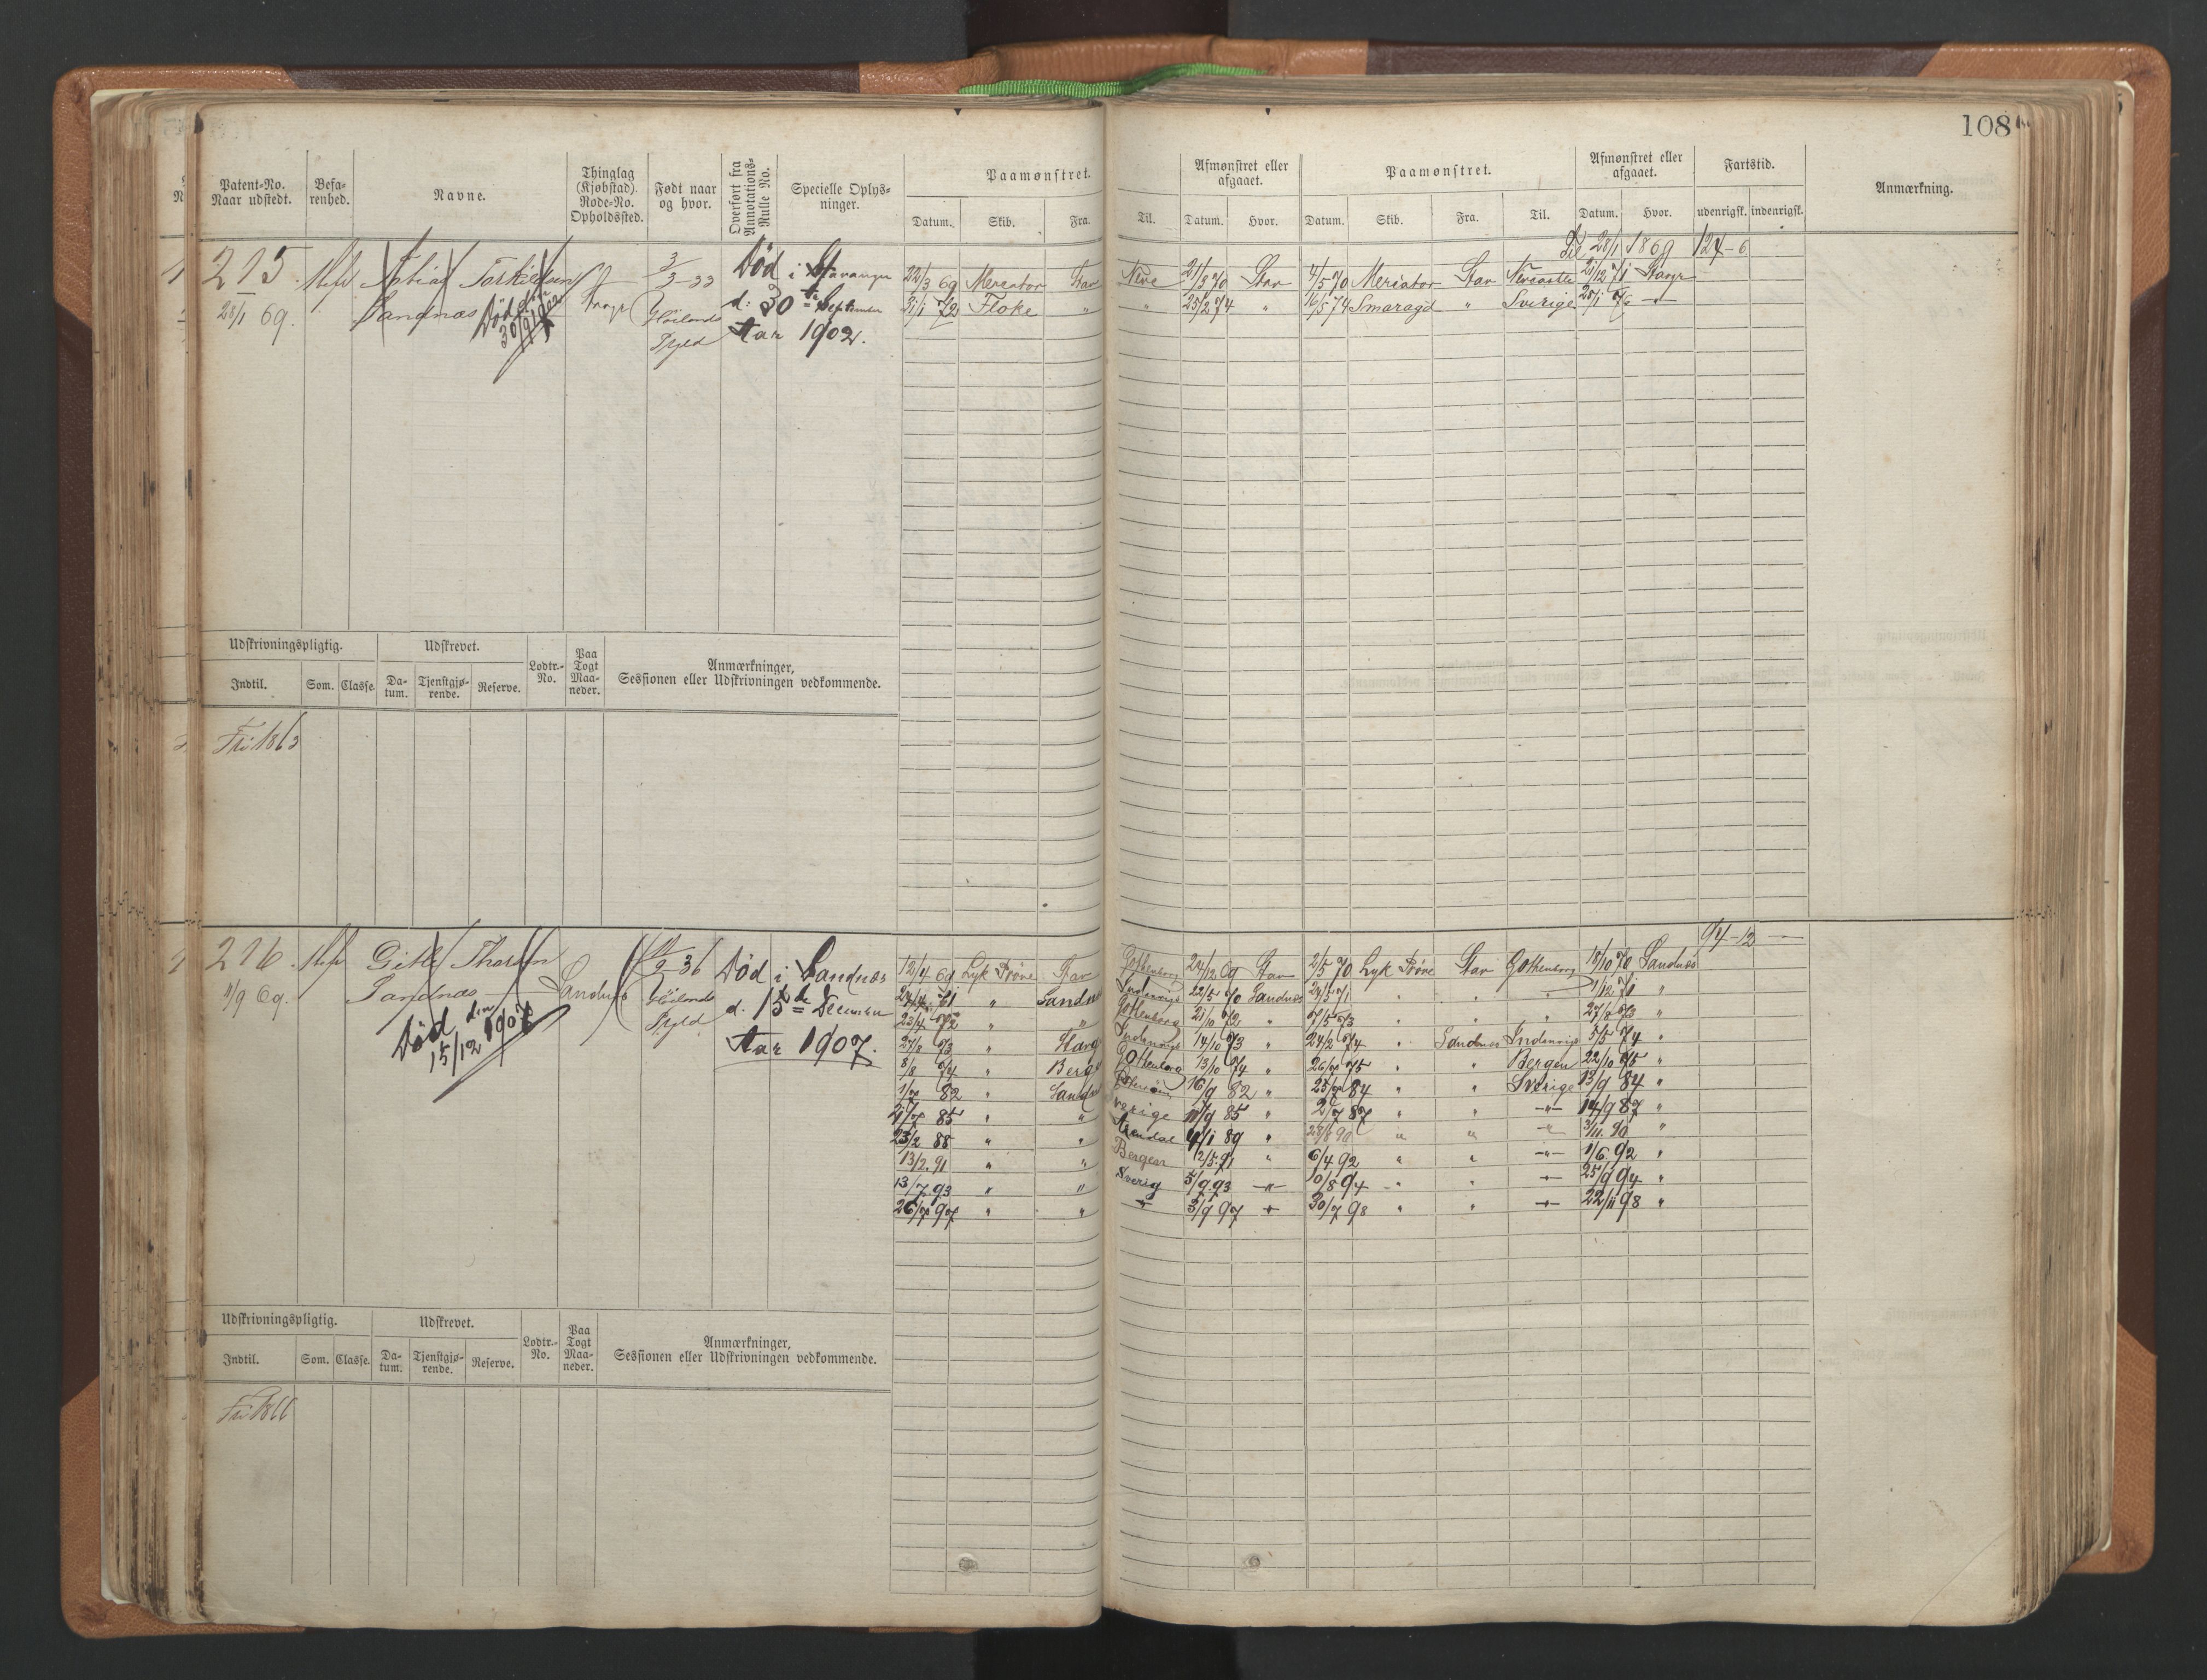 108
Patent-No. Naar udstedt. Befarenhed. Navne. Thinglag (Kjøbstad). Rode-No. Opholdssted. Født naar og hvor. Overført fra Annotations-Rulle No. Specielle Oplysninger. Paamønstret. Afmønstret eller afgaaet. Paamønstret. Afmønstret eller afgaaet. Fartstid. Anmærkning.
Datum. Skib. Fra. Til. Datum. Hvor. Datum. Skib. Fra. Til. Datum. Hvor. udenrigsk. indenrigsk.
Til 28/1 1869 124-6
215 Tobias Taskildsen 3/3 33 Død i Stavanger 22/3 69 Mercator Stav Newc 21/3 70 Stav 4/5 70 Mercator Stav Newcastle 21/12 71 Stavgr
28/1 69. Sandnæs Død den 30/9 1902 Høilands d. 30te September 31/1 72 Floke " " 25/2 74 " 16/5 74 Smaragd " Sverige
Pgjeld år 1902.
Udskrivningspligtig. Udskrevet. Lodtr.-No. Paa Togt Maaneder. Anmærkninger, Sessionen eller Udskrivningen vedkommende.
Indtil. Som. Classe. Datum. Tjenstgjørende. Reserve.
Fri 1863
94-12
216 Gitle Thorsen Sandnæs Død i Sandnæs 12/4 69 Lyk Prøve Stav Gothenborg 24/12 69 Stav 2/5 70 Lyk Prøve Stav Gothenborg 18/10 70 Sandnæs
11/9 69. Sandnæs Høilands d. 15de Decemen 24/4 71 " Sandnæs Indenrigs 22/5 70 Sandnæs 24/5 71 " " " 1/12 71 "
Død den 15/12 1907 Pgjeld år 1907. 23/4 72 " " Gothenborg 21/10 72 " 7/5 73 " " " 27/8 73 "
27/8 73 " Stavg Indenrigs 14/10 73 " 24/2 74 " Sandnæs Indenrigs 5/5 74 "
8/8 74 " Berg Gothenborg 13/10 74 " 26/7 75 " " Bergen 22/10 75 "
1/7 82 " Sandn 16/9 82 " 25/7 84 " " Sverige 13/9 84 "
4/7 85 " " Sverige 11/9 85 " 2/7 87 " " -"- 14/9 87 "
23/2 88 " " Arendal 4/1 89 " 28/8 90 " " -"- 3/11 90 "
13/2 91 " " Bergen 2/5 91 " 6/4 92 " " -"- 1/6 92 "
13/7 93 " " Sverig 5/9 93 -"- 10/8 94 " " -"- 25/9 94 "
26/7 97 " " -"- 3/9 97 -"- 30/7 98 " " -"- 22/11 98 "
Udskrivningspligtig. Udskrevet. Lodtr.-No. Paa Togt Maaneder. Anmærkninger, Sessionen eller Udskrivningen vedkommende.
Indtil. Som. Classe. Datum. Tjenstgjørende. Reserve.
Fri 1866